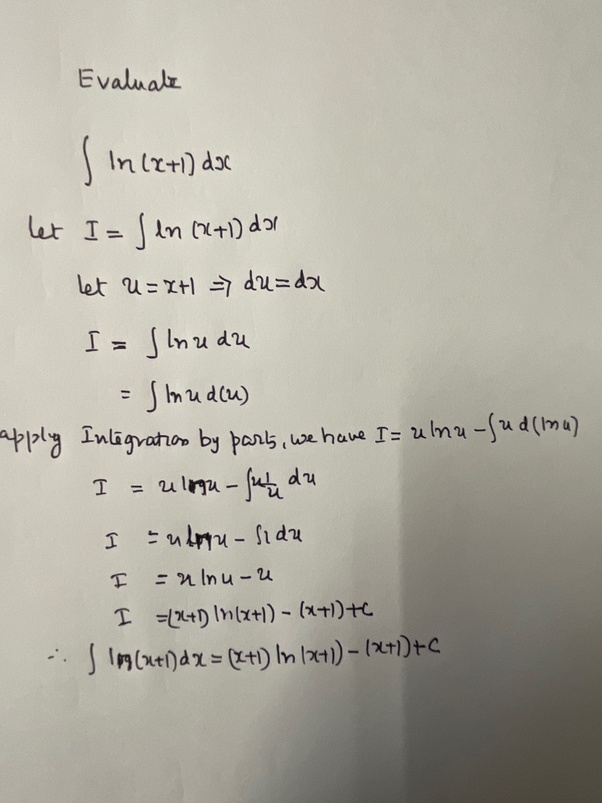 Evaluate
∫ ln(x+1) dx
let I = ∫ ln (x+1) dx
let u = x+1 ⇒ du = dx
I = ∫ ln u du
= ∫ ln u d(u)
apply Integration by parts, we have I = u ln u - ∫ u d(ln u)
I = u log u - ∫ u 1/u du
I = u u - ∫ 1 du
I = u ln u - u
I = (x+1) ln(x+1) - (x+1) + C
∴ ∫ (x+1) dx = (x+1) ln (x+1) - (x+1) + C